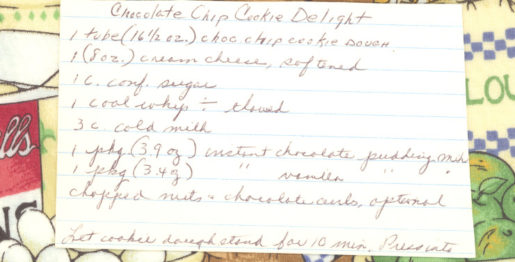 Chocolate Chip Cookie Delight
1 tube (16 1/2 oz.) choc chip cookie DOUGH.
1 (8 oz.) cream cheese, softened
1 c. conf. sugar
1 cool whip ÷ thawed
3 c. cold milk
1 pkg (3.9 oz) instant chocolate pudding mix
1 pkg (3.4 oz) " vanilla " "
chopped nuts & chocolate curls, optional
Let cookie dough stand for 10 min. Press into
LOU
lls